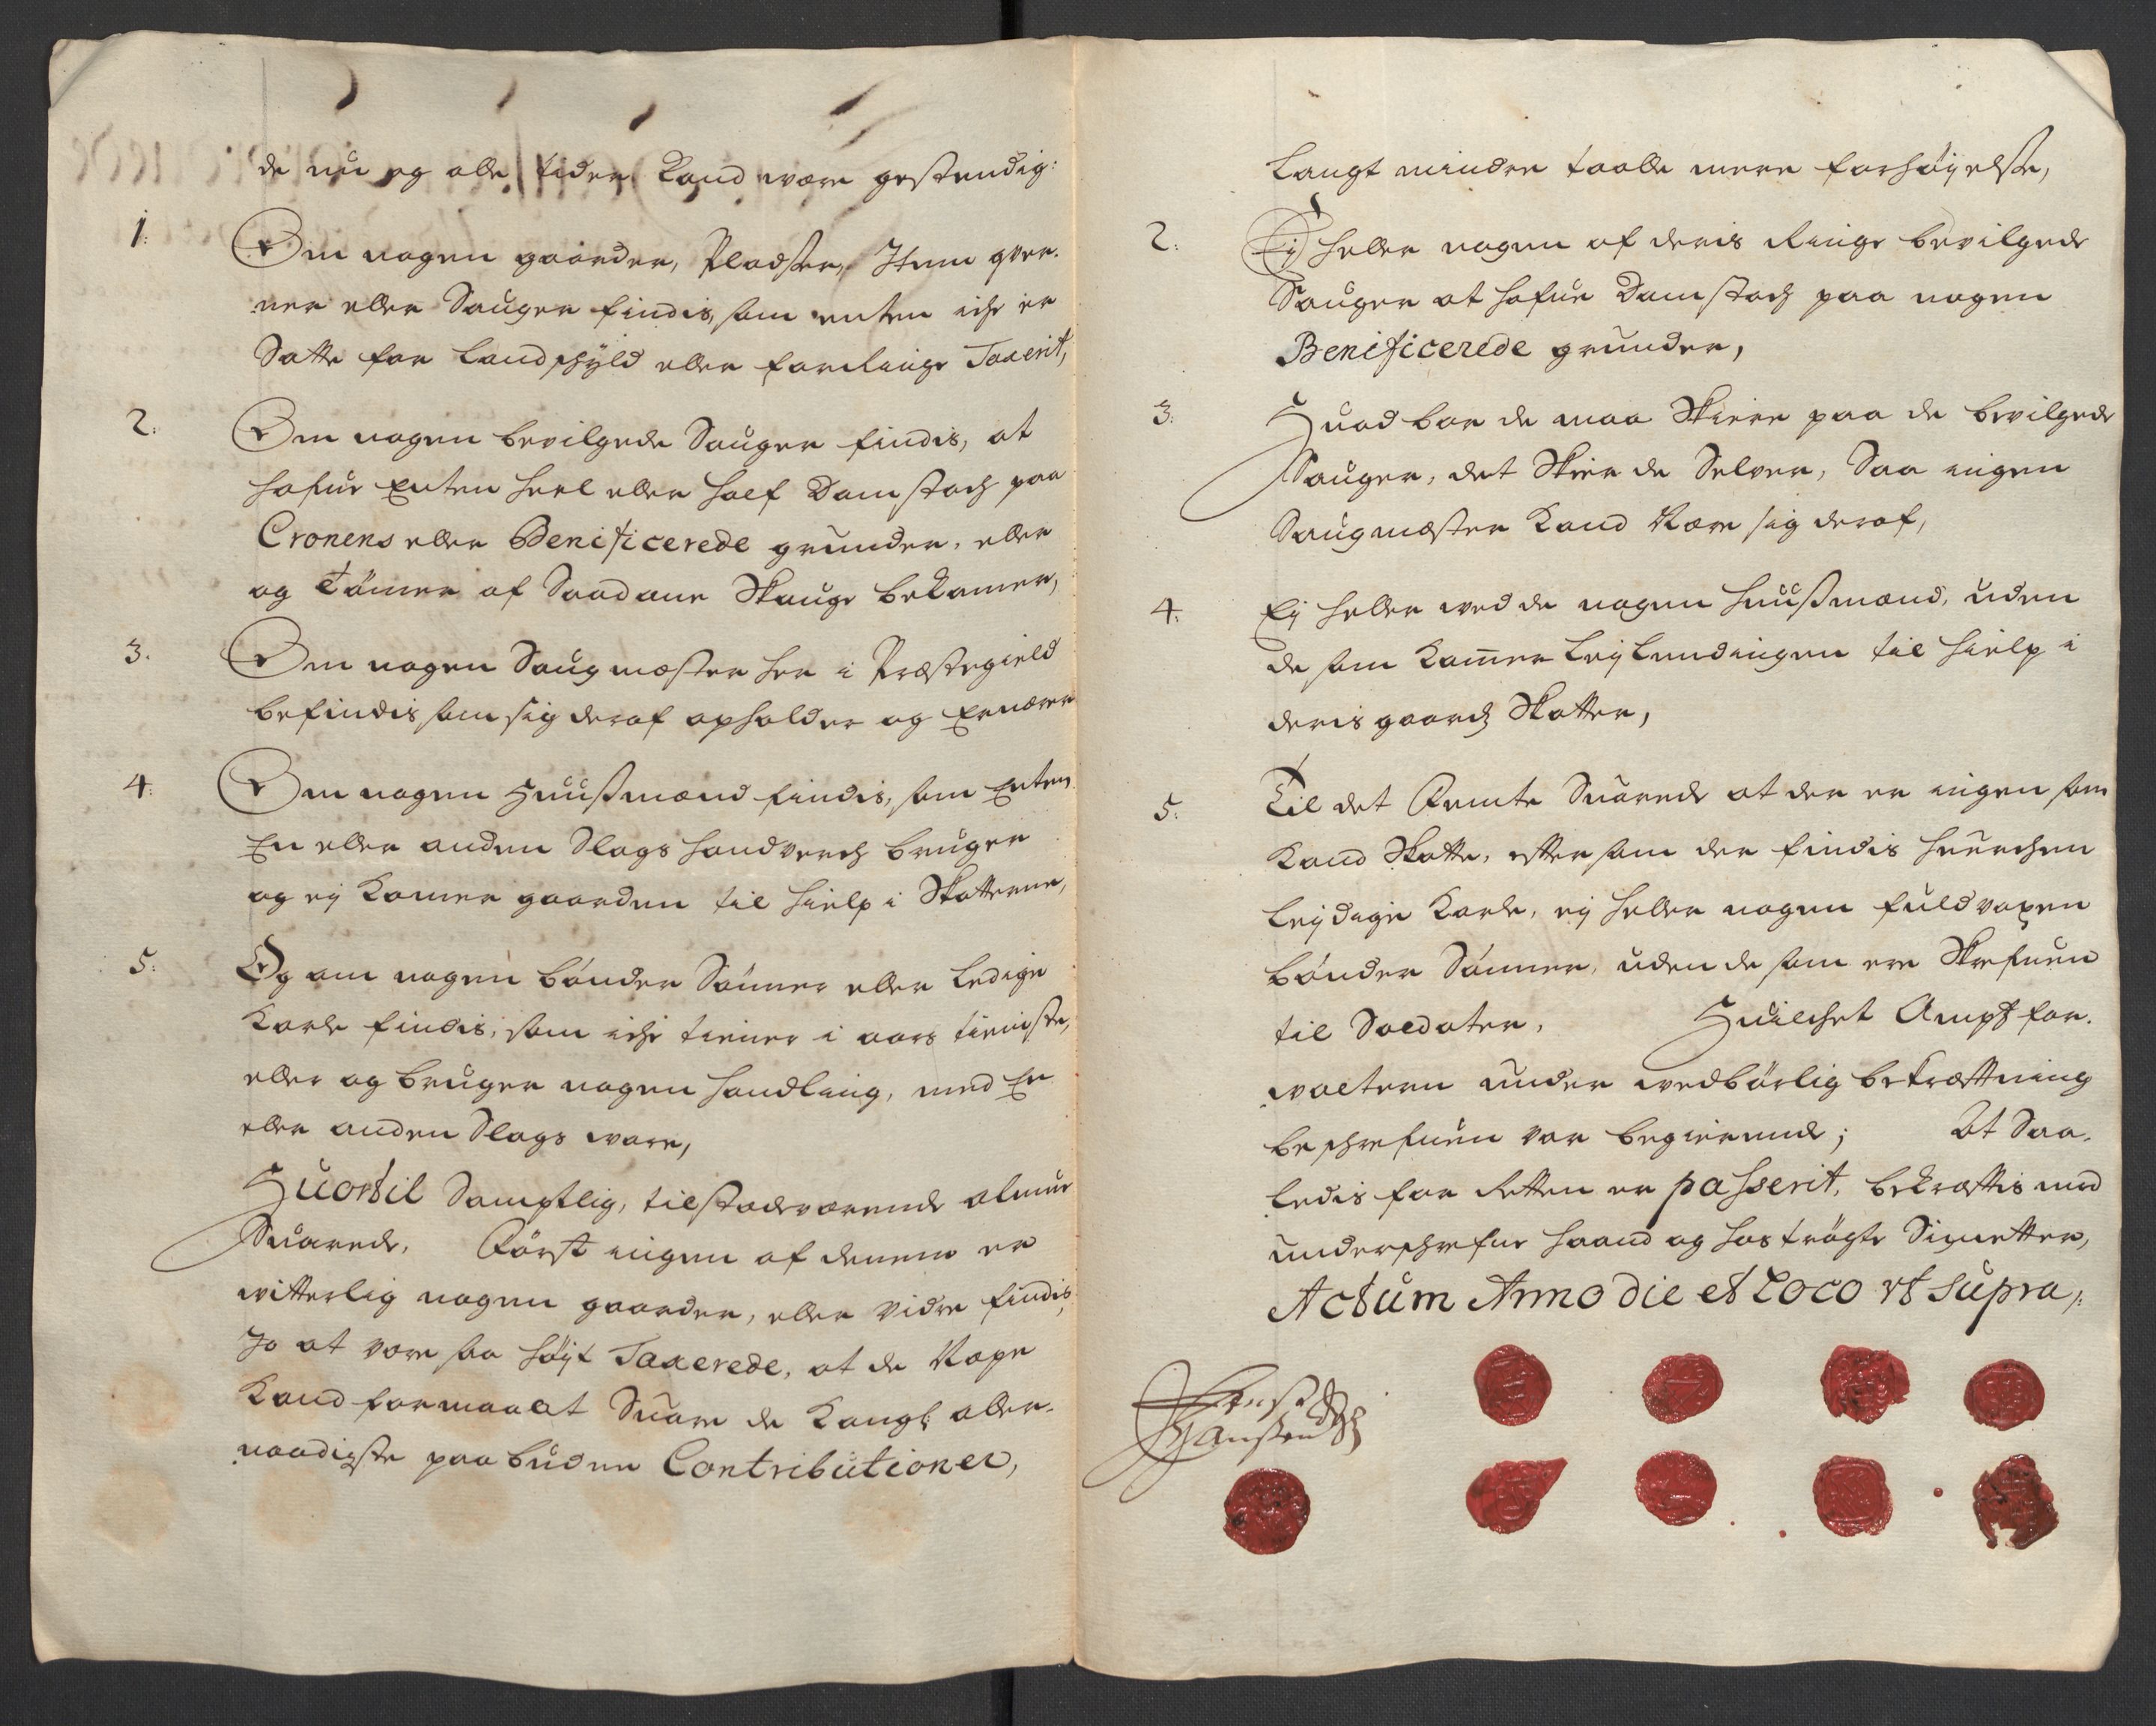 de nu og alle tider Kand være gestendig:
1. Om nogen gaarder, Pladser, Item qver-
ner eller Sauger findis, som enten iche er
Satte for Landschyld eller for ringe Taxerit,
2. Om nogen bevilgede Sauger findis, at
hafue Enten heel eller half Damstoch paa
Cronens eller Benificerede grunder, eller
og Tømer af Saadane Skauge bekomer,
3. Om nogen Saugmæster her i Præstegield
befindis som sig deraf opholder og Ernærer
4. Om nogen Huusmænd findis, som Enten
En eller anden Slags handverch bruger
og ej komer gaarden til hielp i Skatterne,
5. Og om nogen bønder Sønner eller Ledige
Karle findis, som iche tiener i aars tieniste,
eller og bruger nogen handling, med En
eller anden Slags ware,
Huortil Samptlig, tilstædeværende almue
Suarede, Først ingen af dennem er
witterlig nogen gaarder, eller vidre findis
Jo at være saa høyt Taxerede, at de Nape
Kand formaa at Suare de Kongl: aller-
naadigste paabudne Contributioner,
Langt mindre taale mere forhøyelse,
2. Ej heller nogen af deris Ringe bevilgede
Sauger at hafue Damstoch paa nogen
Benificerede grunder,
3. Huad bor de maa Skiere paa de bevilgede
Sauger, det Skier de Selver, Saa ingen
Saugmæster Kand Nære sig deraf,
4. Ej heller wed de nogen huusmænd, uden
de som Kommer Leylendingen til hielp i
deris gaards Skatter,
5. Til det Femte Suarede at der er ingen som
Kand Skatte, efter som der findis huerchen
Leydige Karle, ej heller nogen fuldvoxen
bønder Sønner, uden de som ere Skrefuen
til Soldater, Huilchet Ampt for-
walteren under wedbørlig bekræftning
beschrefuen var begierende; At Saa-
ledis for Retten er passerit, bekræftis med
underschrefne haand og hostrøgte Signetter,
Actum Anno die et Loco ut supra,:
Hanssen